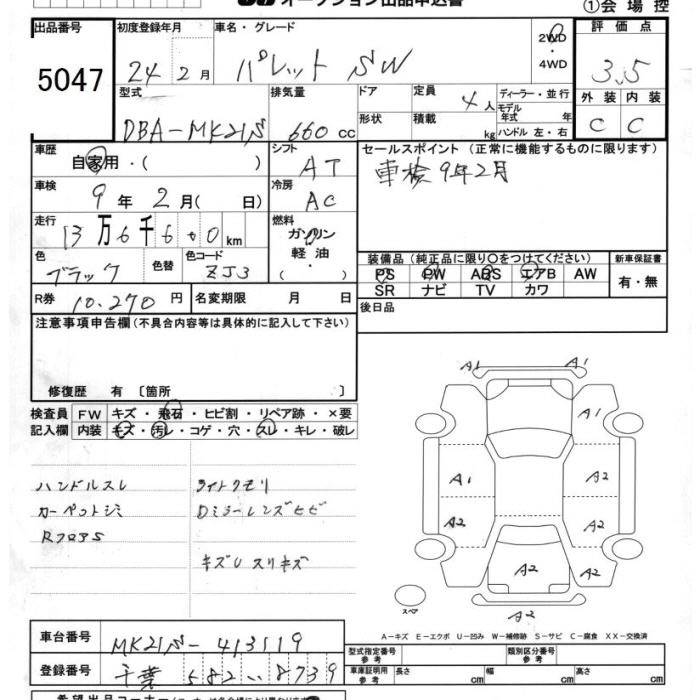 オークション出品申込書 ①会場控
出品番号 初度登録年月 車名・グレード 2WD・4WD 評価点
5047 24年2月 パレット SW 3.5
型式 排気量 ドア 定員 4人 ディーラー・並行 外装 内装
DBA-MK21S 660cc 形状 積載 kg モデル年式 年式 ハンドル 左・右 C C
車歴 自家用・( ) シフト AT セールスポイント (正常に機能するものに限ります)
車検 9年2月( 日) 冷房 AC 車検9年2月
走行 13万6千600km 燃料 ガソリン・軽油・( )
色 ブラック 色替 色コード ZJ3 装備品 (純正品に限り〇をつけてください) 新車保証書
PS PW ABS エアB AW 有・無
SR ナビ TV カワ
R券 10.270円 名変期限 月 日 後日品
注意事項申告欄(不具合内容等は具体的に記入して下さい)
修復歴 有 [箇所 ]
検査員 FW キズ・飛石・ヒビ割・リペア跡・×要
記入欄 内装 キズ・汚レ・コゲ・穴・スレ・キレ・破レ
ハンドルスレ ライトクモリ
カーペットシミ Dミラーレンズヒビ
RフロアS
キズUスリキズ
A1 A1
A1
A1 A2
A2 A2
A2 A2
A2
スペア
A-キズ E-エクボ U-凹み W-補修跡 S-サビ C-腐食 XX-交換済
車台番号 MK21S-413119 型式指定番号 参考 類別区分番号 参考
登録番号 千葉 582 い 8739 車庫証明用 参考 長さ cm 幅 cm 高さ cm
希望出品コーナー